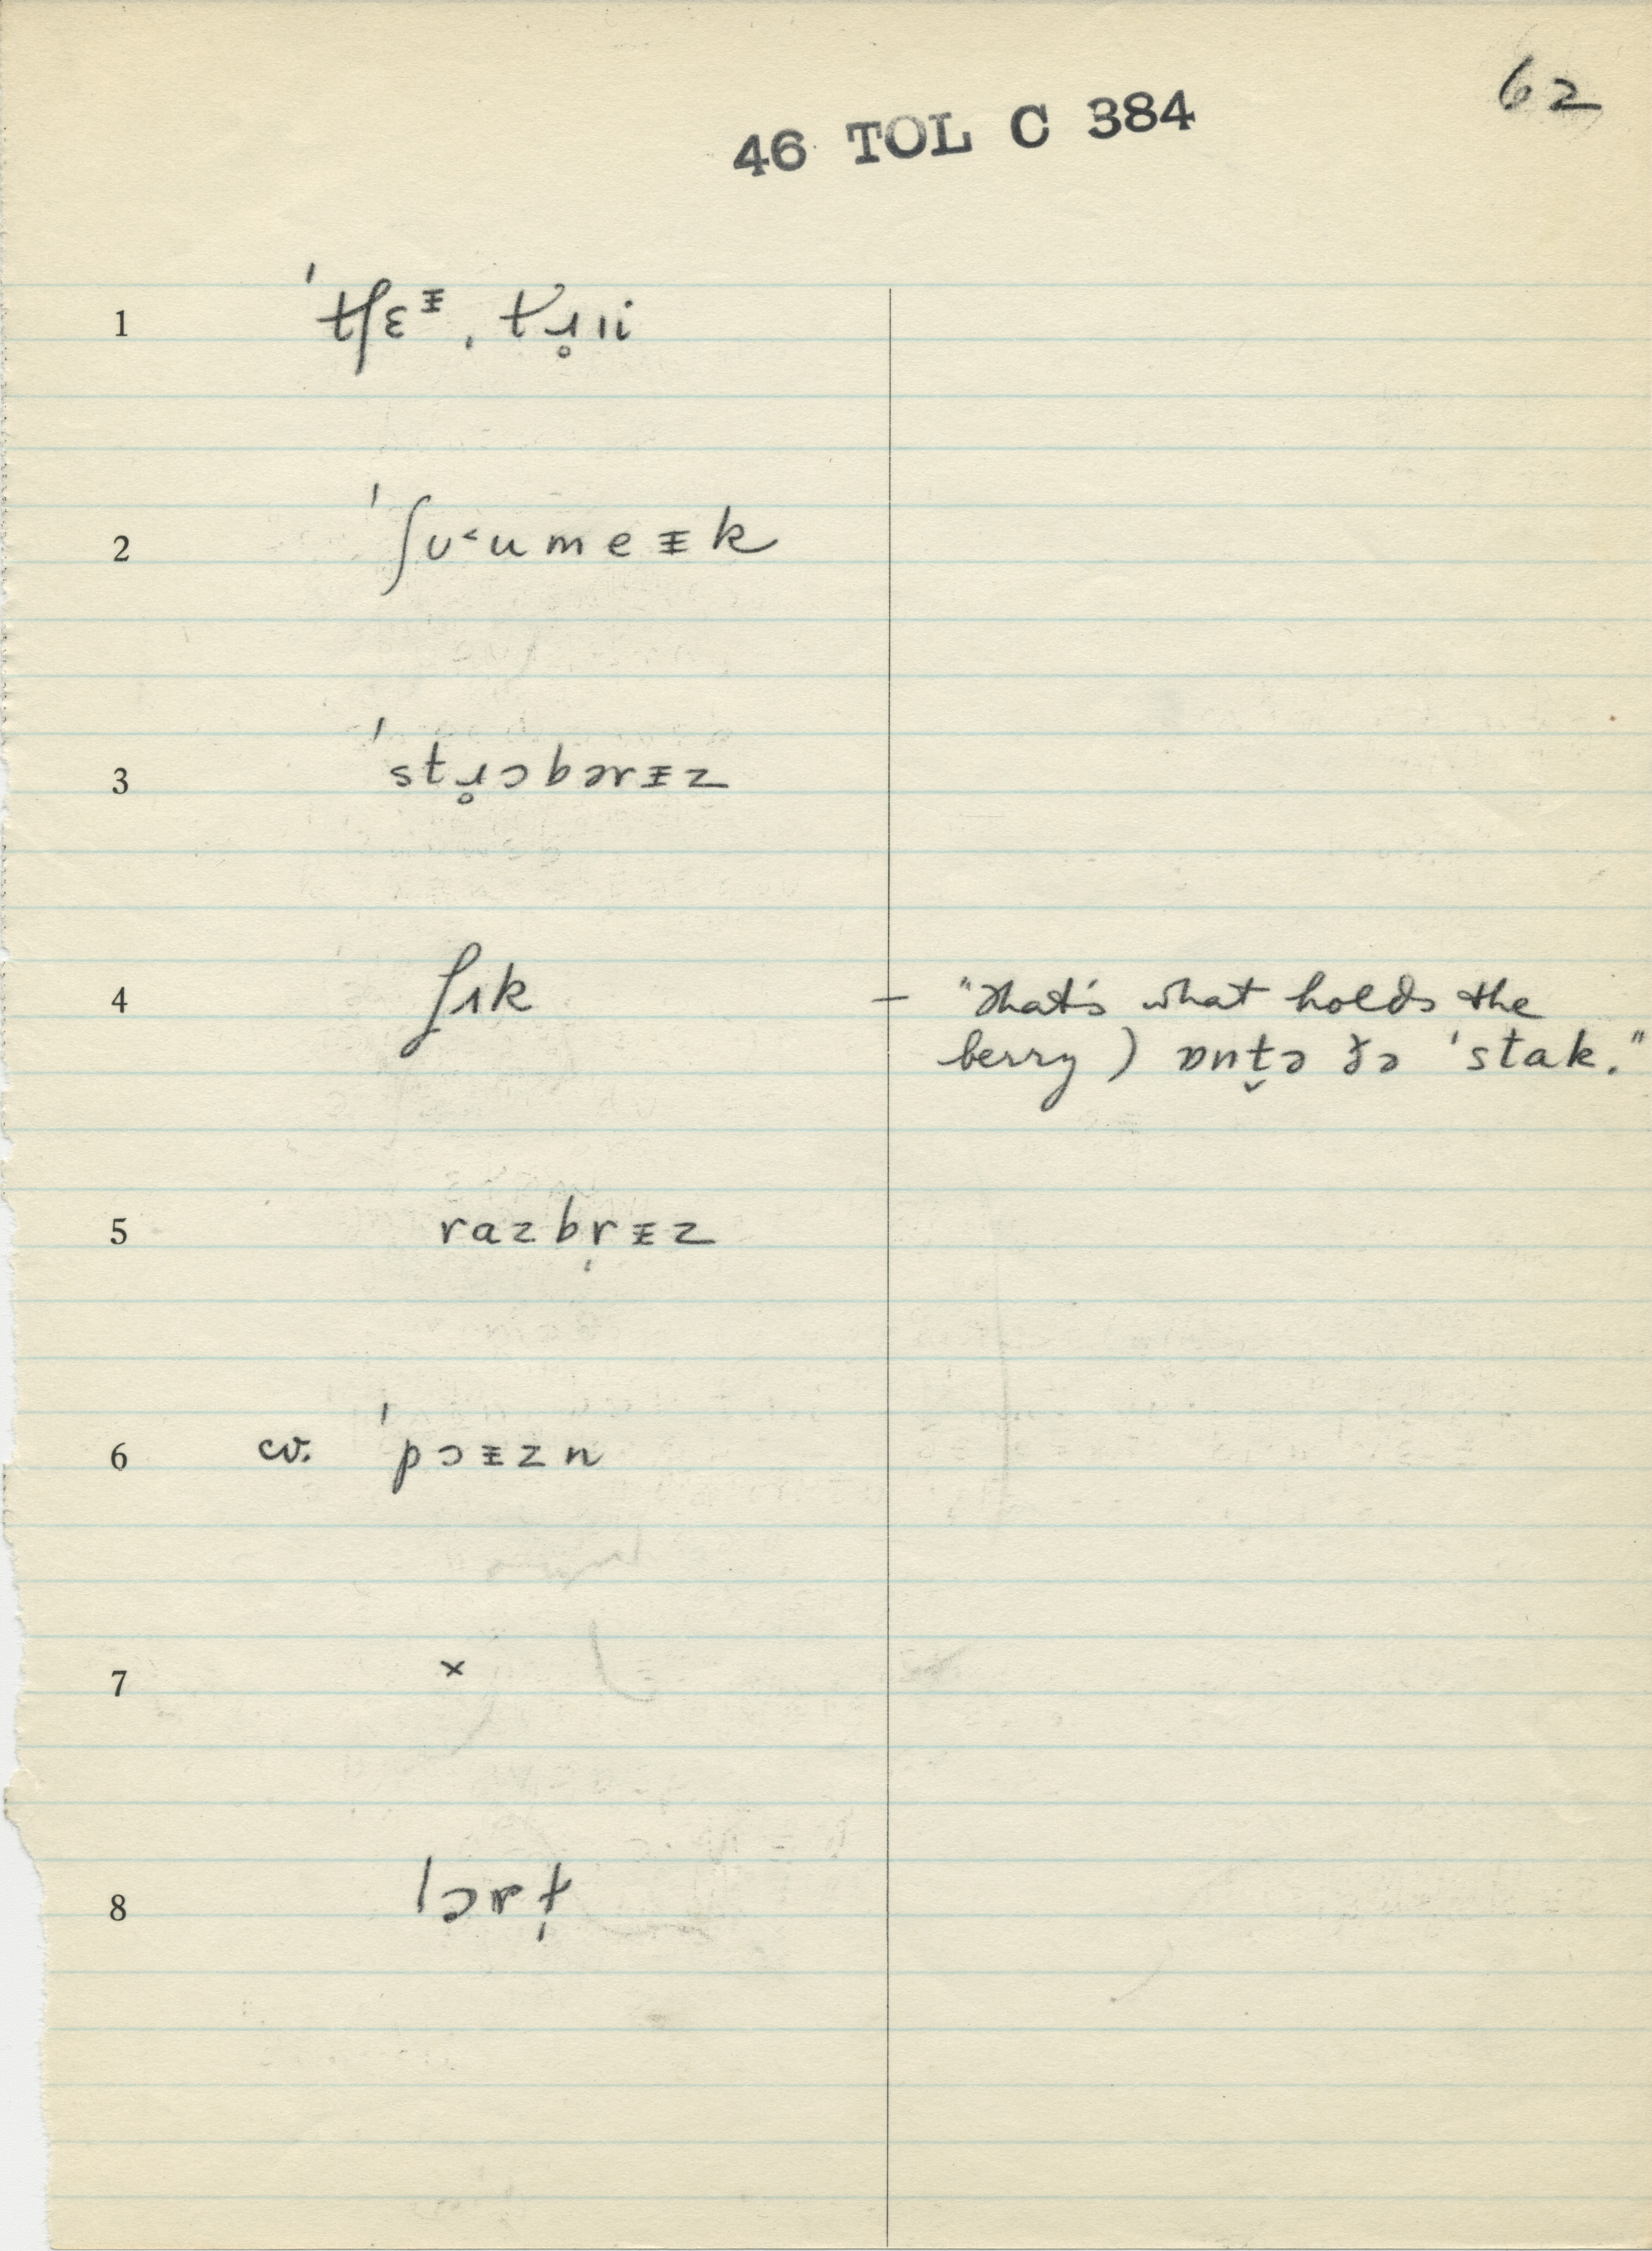 62
46 TOL C 384
1 ˈtʃɛᵻ ˌtɹ̥ɪi
2 ˈʃʊ˂umeᵻk
3 ˈstɹ̥ɔbərᵻz
4 ʃɪk – "that's what holds the
berry) ɒnt̬ə ðə ˈstak."
5 razbr̩rᵻz
6 cv. ˈpɔᵻzn
7 ×
8 lɔrɫ̩